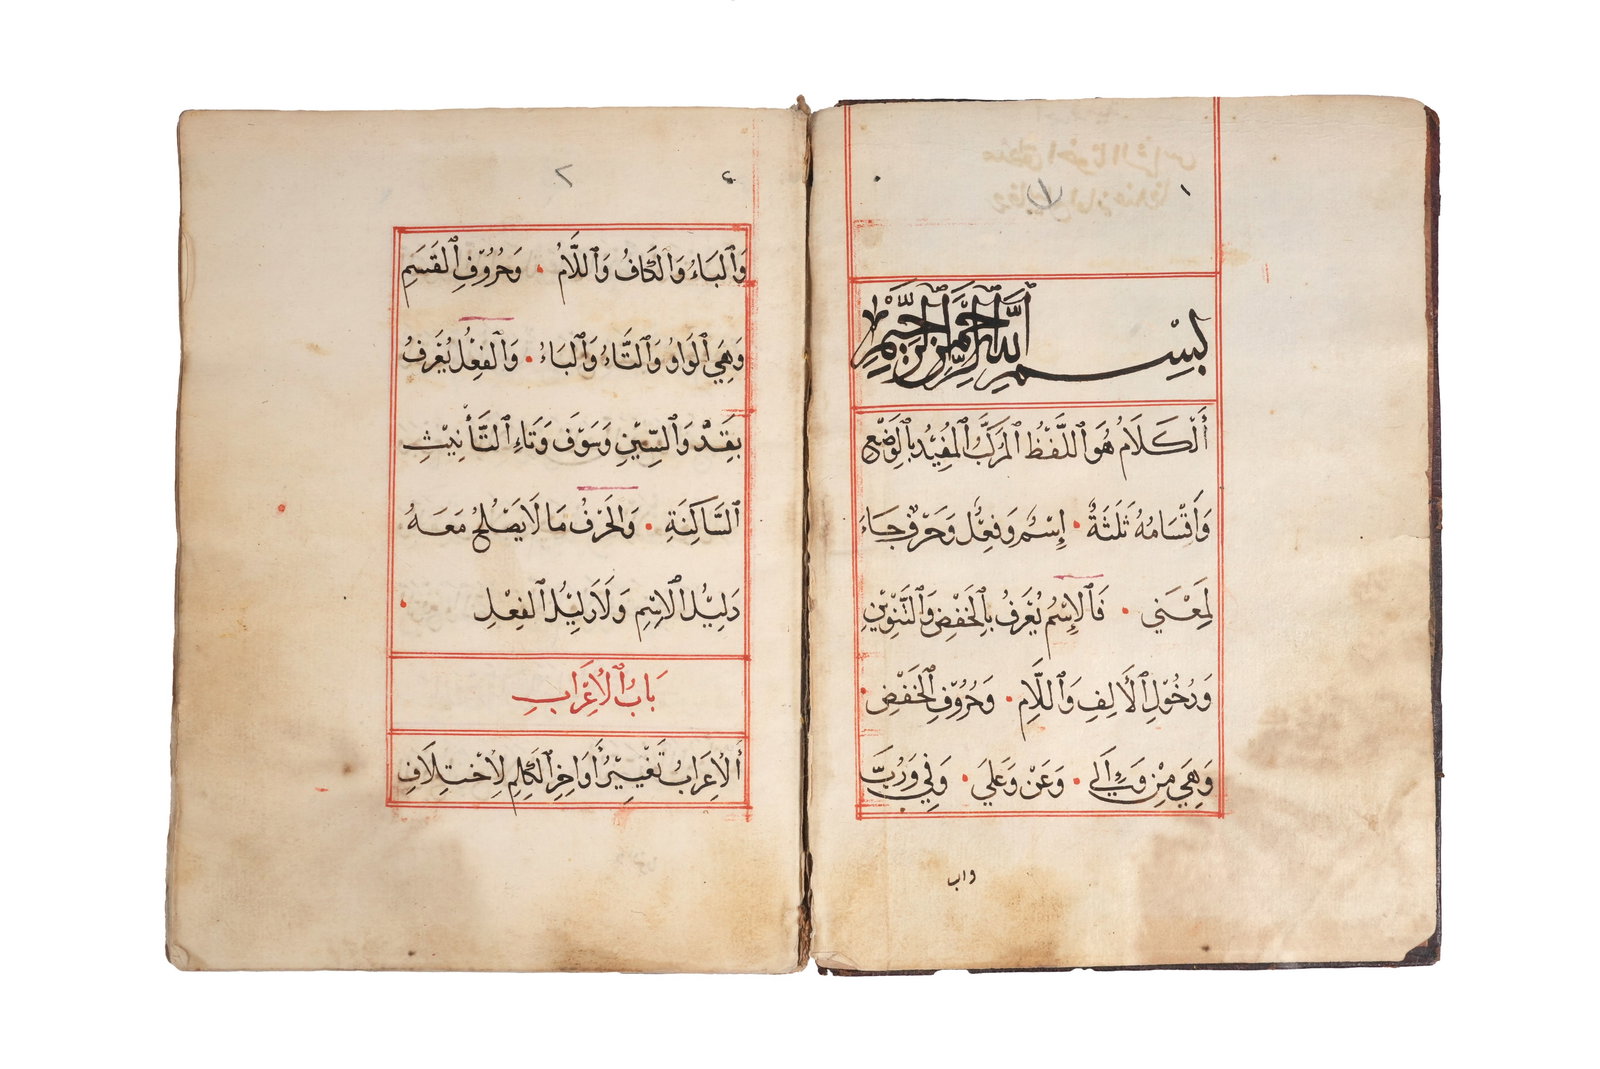 ١
بِسْمِ ٱللَّهِ ٱلرَّحْمَٰنِ ٱلرَّحِيمِ
أَلْكَلَامُ هُوَ ٱللَّفْظُ ٱلْمُرَكَّبُ ٱلْمُفِيْدُ بِالْوَضْعِ
وَأَقْسَامُهُ ثَلَثَةٌ • إِسْمٌ وَفِعْلٌ وَحَرْفٌ جَاءَ
لِمَعْنَي • فَٱلْإِسْمُ يُعْرَفُ بِٱلْخَفْضِ وَٱلتَّنْوِيْنِ
وَدُخُوْلِ ٱلْأَلِفِ وَٱللَّامِ • وَحُرُوْفِ ٱلْخَفْضِ •
وَهِيَ مِنْ وَإِلَي • وَعَنْ وَعَلَي • وَفِي وَرُبَّ
واب
٢
وَٱلْبَاءُ وَٱلْكَافُ وَٱللَّامُ • وَحُرُوْفِ ٱلْقَسَمِ
وَهِيَ ٱلْوَاوُ وَٱلتَّاءُ وَٱلْبَاءُ • وَٱلْفِعْلُ يُعْرَفُ
بِقَدْ وَٱلسِّيْنِ وَسَوْفَ وَتَاءِ ٱلتَّأْنِيْثِ
ٱلسَّاكِنَةِ • وَٱلْحَرْفُ مَا لَا يَصْلُحُ مَعَهُ
دَلِيْلُ ٱلْاِسْمِ وَلَا دَلِيْلُ ٱلْفِعْلِ •
بَابُ ٱلْاِعْرَابِ
أَلْاِعْرَابُ تَغْيِيْرُ أَوَاخِرِ ٱلْكَلِمِ لِاخْتِلَافِ